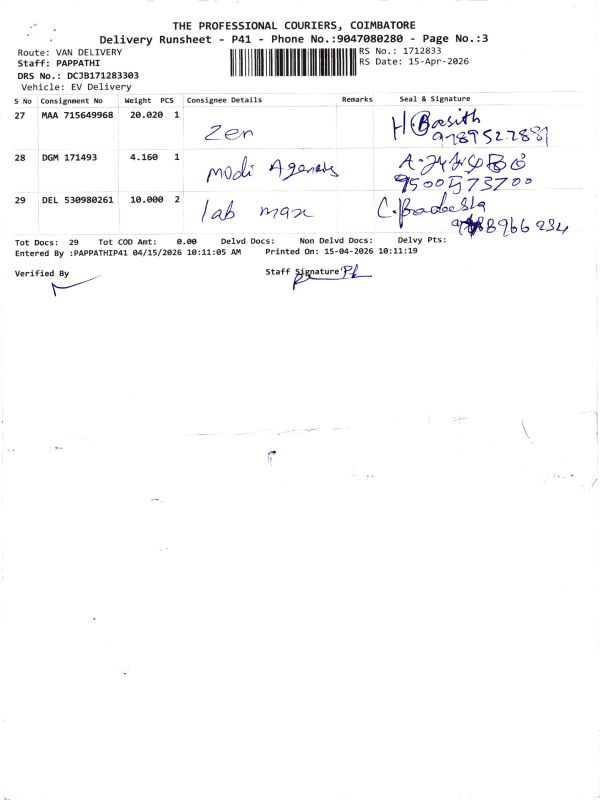 THE PROFESSIONAL COURIERS, COIMBATORE
Delivery Runsheet - P41 - Phone No.:9047080280 - Page No.:3
Route: VAN DELIVERY
RS No.: 1712833
Staff: PAPPATHI
RS Date: 15-Apr-2026
DRS No.: DCJB171283303
Vehicle: EV Delivery
S No Consignment No Weight PCS Consignee Details Remarks Seal & Signature
27 MAA 715649968 20.020 1 Zen H Basith
9789527881
28 DGM 171493 4.160 1 Modi Agencies
9500573700
29 DEL 530980261 10.000 2 lab max C.
Tot Docs: 29 Tot COD Amt: 0.00 Delvd Docs: Non Delvd Docs: Delvy Pts:
Entered By :PAPPATHIP41 04/15/2026 10:11:05 AM Printed On: 15-04-2026 10:11:19
Verified By Staff Signature